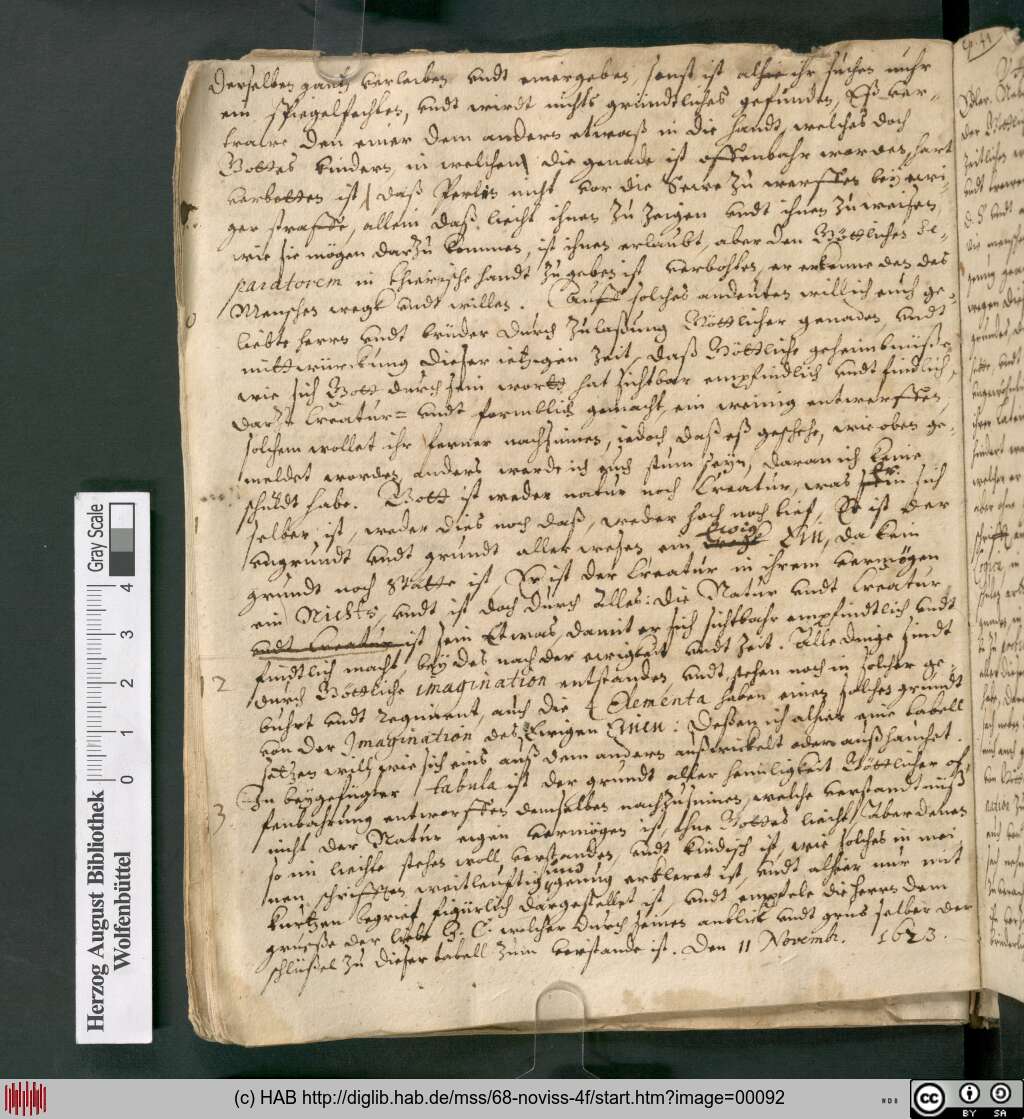 derselben gantz verleiben undt einergeben, sonst ist alhie ihr suchen nuhr
ein spiegelfechten, undt wirdt nichts gründtliches gefunden, Eß ver-
trawe den einer dem andern etwaß in die handt, welches doch
Gottes kindern, in welchen die genade ist offenbahr worden, hart
verbotten ist, daß Perlin nicht vor die Sewe zu werffen bey ewi-
ger straffe, allein daß liecht ihnen zu zeigen undt ihnen zu weisen
wie sie mögen darzu kommen, ist ihnen erlaubt, aber den Göttlichen Se-
paratorem in Thierische handt zu geben ist verbohten, er erkenne den des
Menschen wege undt willen. Auff solches andeuten will ich euch ge-
liebte herrn undt brüder durch zulaßung Göttlicher genaden undt
mittwürckung dieser ietzigen zeit, daß Göttliche geheimbnüß,
wie sich Gott durch sein wortt hat sichtbar empfindlich undt findlich,
darzu Creatur= undt formlich gemacht, ein wenig entwerffen,
solchem wollet ihr ferner nachsinnen, iedoch daß eß geschehe, wie oben ge-
meldet worden, anders werde ich euch stum seyn, daran ich keine
schuldt habe. Gott ist weder natur noch Creatur, was er in sich
selber ist, weder dies noch daß, weder hoch noch tief, Er ist der
ungrundt undt grundt aller wesen ein Ewig Ein, da kein
grundt noch Stätte ist, Er ist der Creatur in ihrem vermögen
ein Nichts, undt ist doch durch Alles: die Natur undt Creatur
undt Creatur ist sein Etwas, damit er sich sichtbahr empfindtlich undt
findtlich macht, beydes nach der ewigkeit undt zeit. Alle dinge sindt
2 durch Göttliche imagination entstanden undt stehen noch in solcher ge-
buhrt undt regiment, auch die 4 Elementa haben einen solchen grundt
von der Imagination des Ewigen Einen: deßen ich alhier eine tabell
setzen will, wie sich eins auß dem andern außwickelt oder außhauchet.
3. In beygefügter tabula ist der grundt aller heimligkeit Göttlicher of-
fenbahrung entworffen demselben nachzusinnen, welche verstandtnüß
nicht der Natur eigen vermögen ist, ohne Gottes liecht, Aber denen
so im liechte stehen woll verstanden, undt kindisch ist, wie solches in mei
nen schrifften weitleuftig genug erkleret ist, undt alhier nur mit
kurtzen begrief figürlich dargestellet ist, undt empfele die herrn dem
grueße der liebe J. C. welcher durch seinen anblick undt grus selber der
schlüßel zu dieser tabell zum verstande ist. Den 11 Novemb. 1623.
Herzog August Bibliothek
Wolfenbüttel
Gray Scale
0 1 2 3 4
(c) HAB http://diglib.hab.de/mss/68-noviss-4f/start.htm?image=00092
WDB
cc BY SA